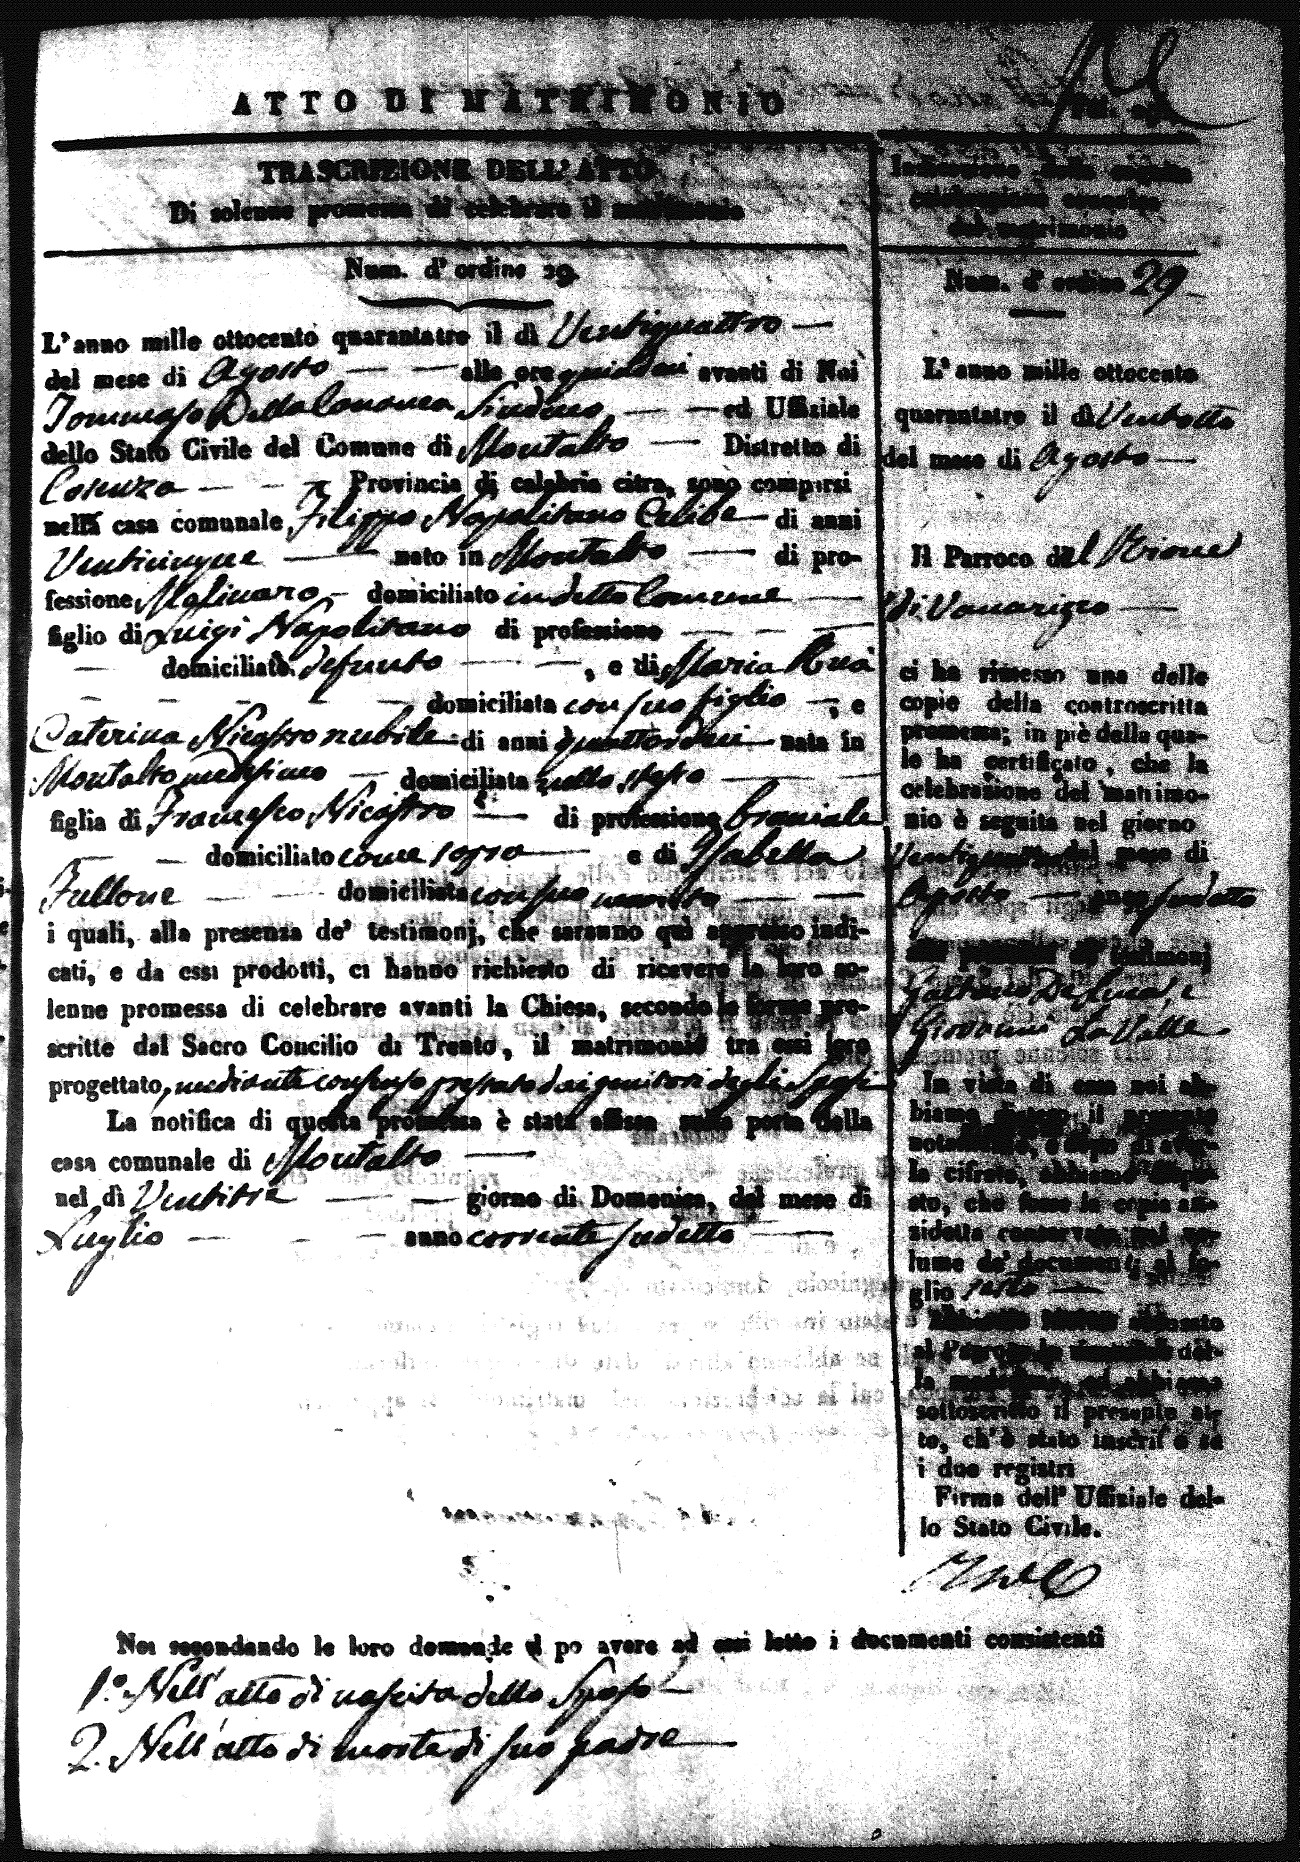 ATTO DI MATRIMONIO
TRASCRIZIONE DELL' ATTO
Di solenne promessa di celebrare il matrimonio
Num. d' ordine 29.
L' anno mille ottocento quarantatre il dì Ventiquattro
del mese di Agosto alle ore quindeci avanti di Noi
Tommaso Della Cananea Sindaco ed Uffiziale
dello Stato Civile del Comune di Montalto Distretto di
Cosenza Provincia di calabria citra, sono comparsi
nella casa comunale Filippo Napolitano Celibe di anni
Venticinque nato in Montalto di pro-
fessione Molinaro domiciliato in detto Comune
figlio di Luigi Napolitano di professione
domiciliato defunto , e di Maria Ruà
domiciliata con suo figlio , e
Caterina Nicastro nubile di anni quattordeci nata in
Montalto medesimo domiciliata nello stesso
figlia di Francesco Nicastro di professione braciale
domiciliato come sopra e di Isabella
Fullone domiciliata con suo marito
i quali, alla presenza de' testimonj, che saranno quì appresso indi-
cati, e da essi prodotti, ci hanno richiesto di ricevere la loro so-
lenne promessa di celebrare avanti la Chiesa, secondo le forme pre-
scritte dal Sacro Concilio di Trento, il matrimonio tra essi loro
progettato, mediante consenso prestato dai genitori degli Sposi
La notifica di questa promessa è stata affissa sulla porta della
casa comunale di Montalto
nel dì Ventitrè giorno di Domenica, del mese di
Luglio anno corrente sudetto
Indicazione della seguita
celebrazione canonica
del matrimonio
Num. d' ordine 29
L' anno mille ottocento
quarantatre il dì Ventotto
del mese di Agosto
Il Parroco del Rione
di Vaccarizzo
ci ha rimesso una delle
copie della controscritta
promessa; in piè della qua-
le ha certificato, che la
celebrazione del matrimo-
nio è seguita nel giorno
Ventiquattro del mese di
Agosto anno sudetto
alla presenza de' testimonj
Gaetano De Luca, e
Giovanni La Valle
In vista di essa noi ab-
biamo disteso il presente
notamento, e dopo di aver-
la cifrata, abbiamo dispo-
sto, che fosse la copia an-
zidetta conservata nel vo-
lume de' documenti al fo-
glio sesto
Abbiamo inoltre accusato
al Parroco la ricevuta del-
la medesima, ed abbiamo
sottoscritto il presente at-
to, ch' è stato inscritto su
i due registri
Firma dell' Uffiziale del-
lo Stato Civile.
Noi secondando le loro domande d po avere ad essi letto i documenti consistenti
1.º Nell' atto di nascita dello Sposo
2. Nell' atto di morte di suo padre